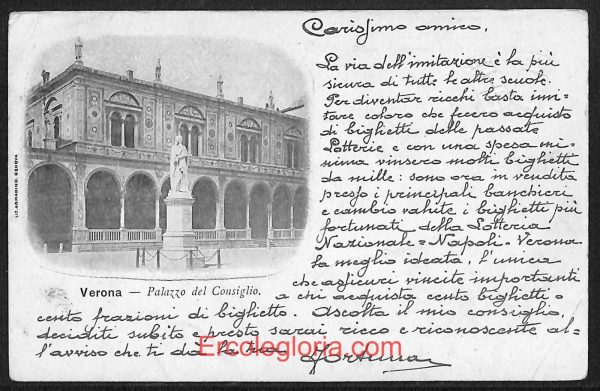 Carissimo amico.
La via dell'imitazione è la più
sicura di tutte le altre scuole.
Per diventar ricchi basta imi-
tare coloro che fecero acquisto
di biglietti delle passate
Lotterie e con una spesa mi-
nima vinsero molti biglietti
da mille: sono ora in vendita
presso i principali banchieri
e cambio valute, i biglietti più
fortunati della Lotteria
Nazionale=Napoli=Verona
la meglio ideata, l'unica
che assicuri vincite importanti
a chi acquista cento biglietti o
cento frazioni di biglietto. Ascolta il mio consiglio,
deciditi subito e presto sarai ricco e riconoscente al-
l'avviso che ti dà la tua
Fortuna
LIT. ARMANINO. GENOVA
Verona — Palazzo del Consiglio.
Ercolegloria.com